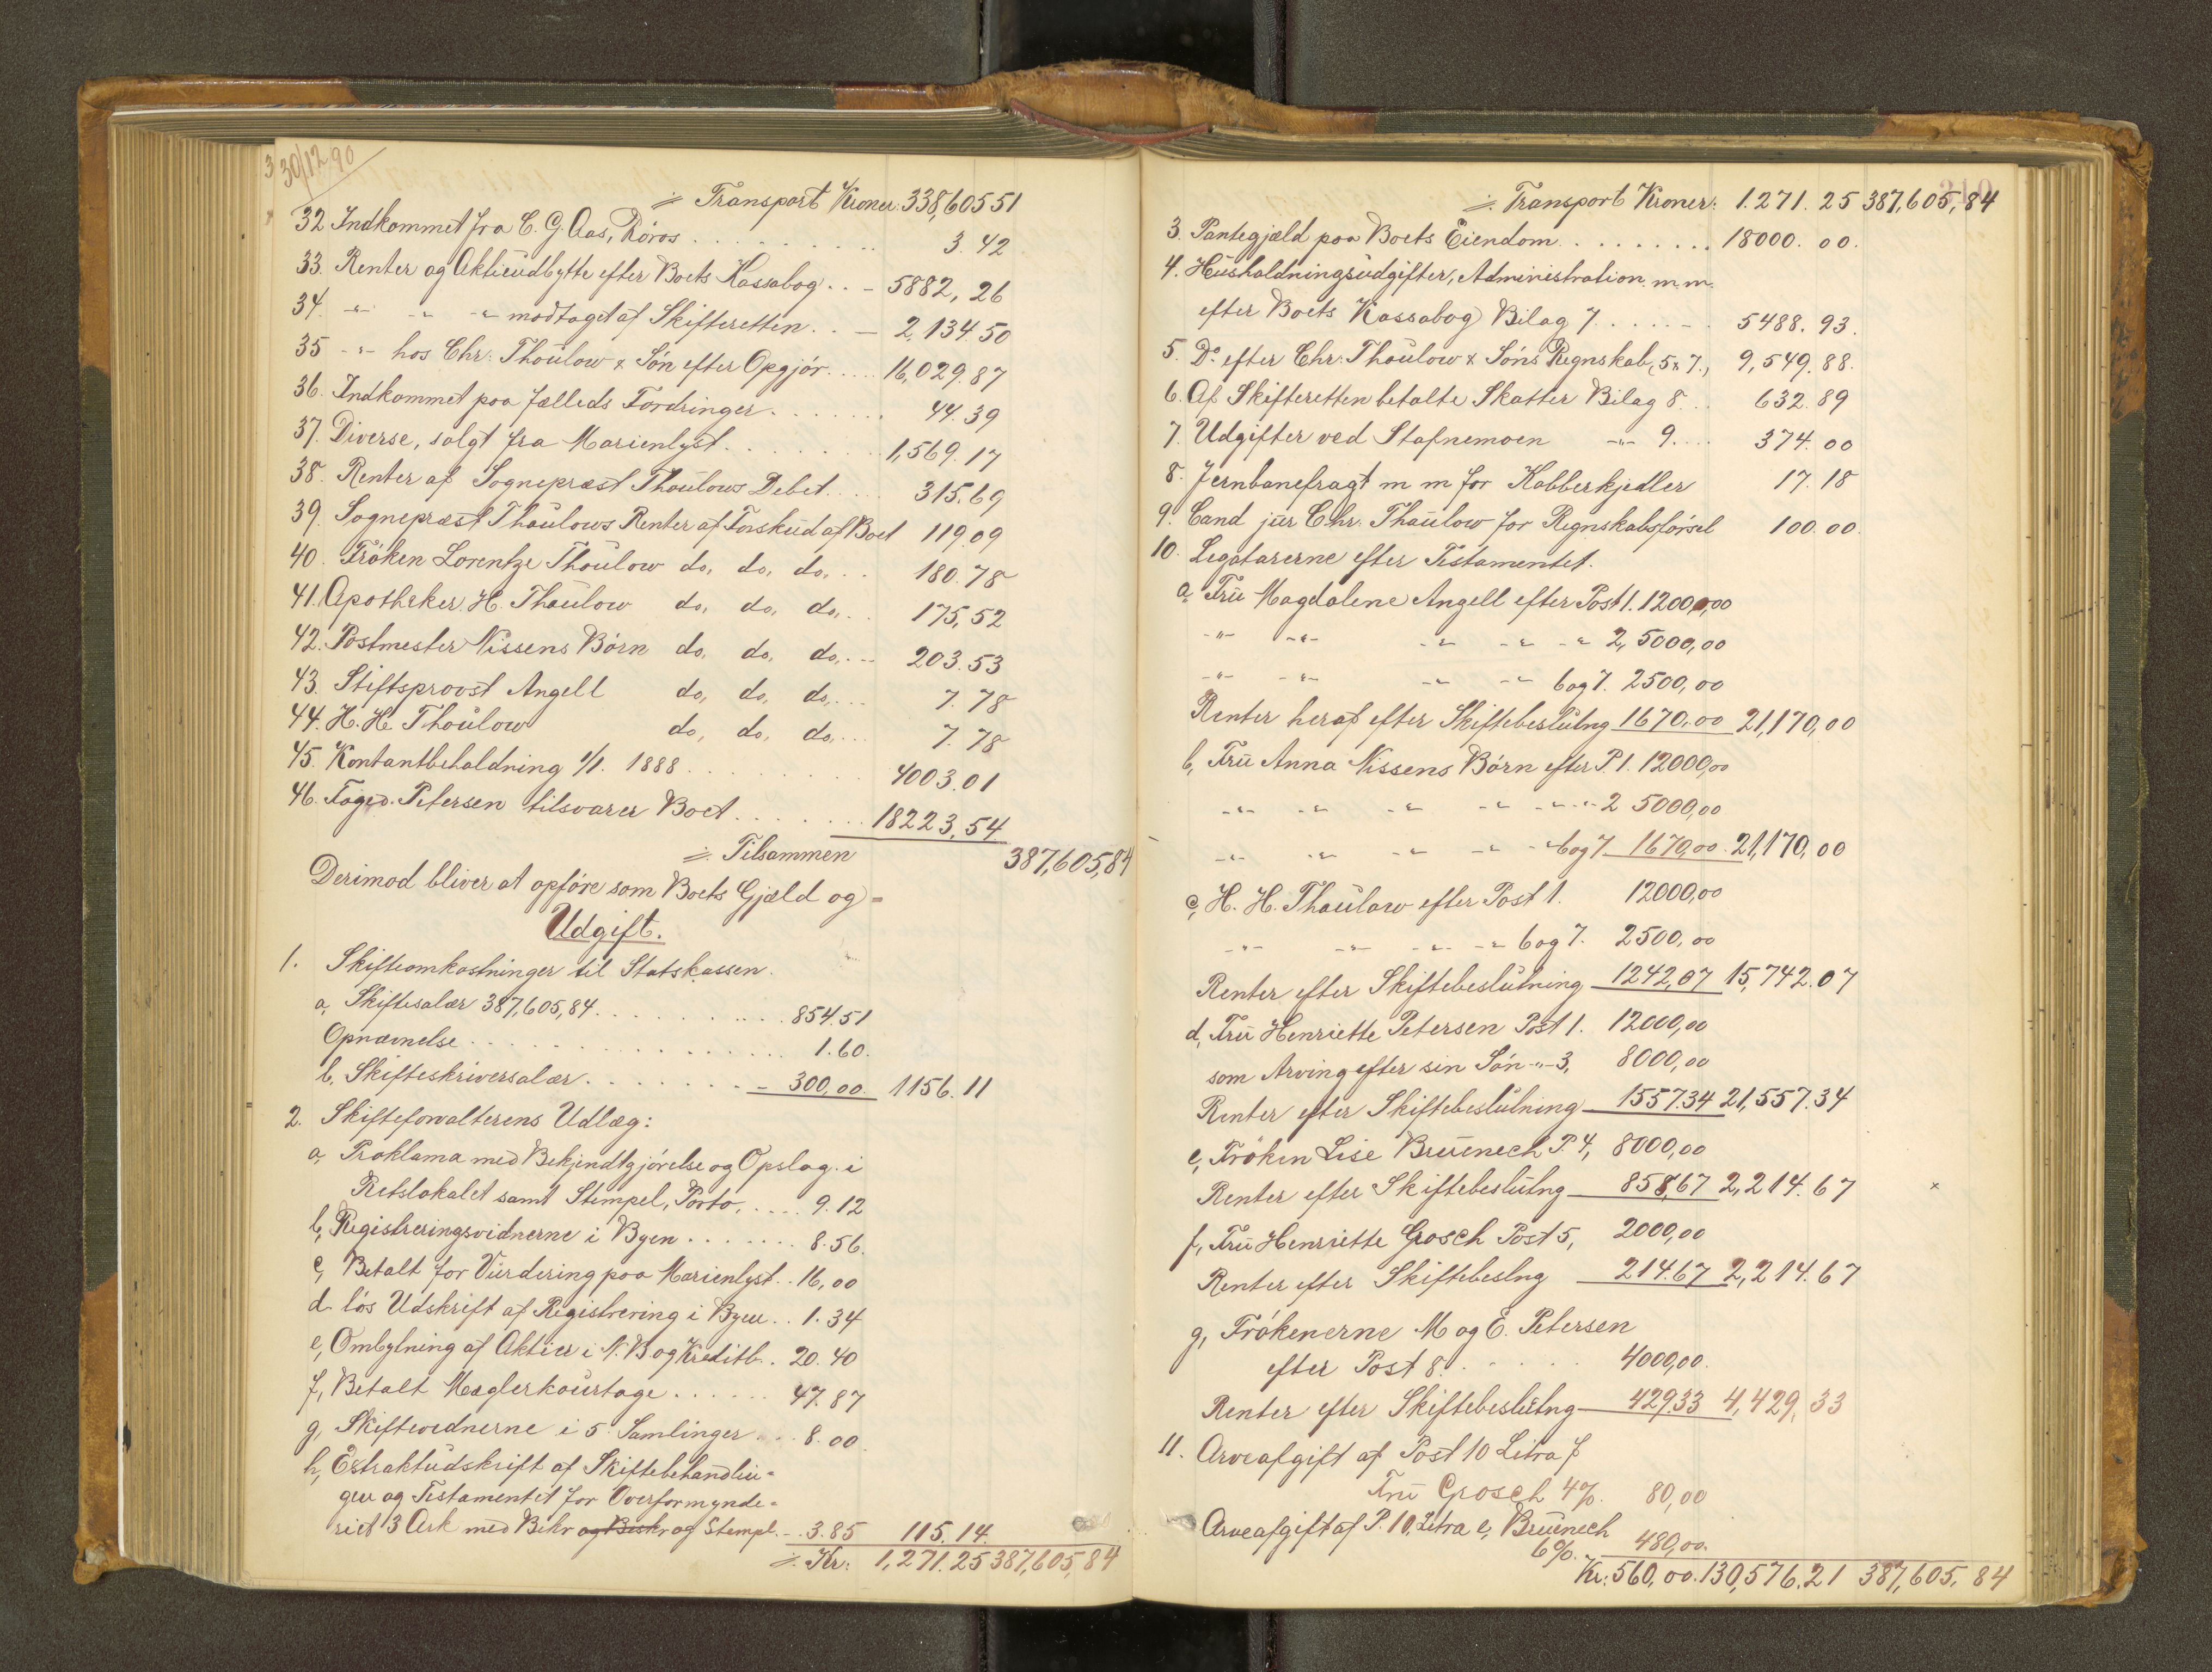 30/12 90
÷ Transport Kroner: 338,605 51
32 Indkommet fra C. G. Aas, Röros . . . 3. 42
33. Renter og Aktieudbytte efter Boets Kassabog . . - 5882, 26
34. -"- -"- -"- modtaget af Skifteretten . . - 2,134 50
35 -"- hos Chr. Thaulow & Sön efter Opgjör . . . 16,029. 87
36. Indkommet paa fælleds Fordringer . . . 44. 39
37. Diverse, solgt fra Marienlyst . . . 1,569. 17
38. Renter af Sognepræst Thaulows Debet . . . 315. 69
39. Sognepræst Thaulows Renter af Forskud af Boet 119 09
40. Fröken Lorentze Thaulow do, do, do, . . 180. 78
41. Apotheker H. Thaulow do, do, do, . . 175, 52
42. Postmester Nissens Börn do, do, do, . - 203. 53
43. Stiftsprovst Angell do, do, do, . . . 7. 78
44. H. H. Thaulow do, do, do, . . . 7. 78
45. Kontantbeholdning 1/1. 1888 . . . 4003. 01
46. Foged. Petersen tilsvarer Boet . . . 18223, 54
÷ Tilsammen 387,605,84
Derimod bliver at opföre som Boets Gjæld og =
Udgift.
1. Skifteomkostninger til Statskassen.
a, Skiftesalær 387,605,84 . . . 854. 51
Opnævnelse . . . 1. 60.
b, Skifteskriversalær . . . - 300,00. 1156. 11
2. Skifteforvalterens Udlæg:
a, Proklama med Bekjendtgjörelse og Opslag i
Retslokalet samt Stempel, Porto, . . . 9. 12
b, Registreringsvidnerne i Byen . . . 8. 56.
c, Betalt for Vurdering paa Marienlyst . . 16,00
d lös Udskrift af Registrering i Byen . . 1. 34
e, Ombytning af Aktier i N. B og Kreditb. . 20. 40
f, Betalt Mæglerkourtage . . . 47. 87
g, Skiftevidnerne i 5 Samlinger . . . 8. 00
h, Extraktudskrift af Skiftebehandlin=
gen og Testamentet for Overformynde=
riet 3 Ark med Bekr og Beskr og Stempl. - 3. 85 115. 14.
÷ Kr: 1,271. 25 387,605,84
÷ Transport Kroner: 1. 271. 25 387,605, 84
3. Pantegjæld paa Boets Eiendom . . . 18000. 00.
4. Husholdningsudgifter, Administration m. m.
efter Boets Kassabog Bilag 7 . . . 5488. 93.
5. Do efter Chr. Thaulow & Söns Regnskab, 5 & 7., 9,549. 88.
6. Af Skifteretten betalte Skatter Bilag 8 . . 632. 89
7. Udgifter ved Stafnemoen -"- 9. . . . 374. 00
8. Jernbanefragt m m for Kobberkjedler 17. 18
9. Cand jur Chr. Thaulow for Regnskabsförsel 100. 00.
10. Legatarerne efter Testamentet.
a, Fru Magdalene Angell efter Post 1. 12000,00
-"- -"- -"- -"- -"- 2, 5000,00
-"- -"- -"- -"- 6 og 7. 2500,00
Renter heraf efter Skiftebeslutng 1670,00 21,170,00
b, Fru Anna Nissens Börn efter P. 1. 12000,00
-"- -"- -"- -"- -"- 2 5000,00
-"- -"- -"- -"- -"- 6 og 7 1670,00. 21,170,00
c, H. H. Thaulow efter Post 1. 12000,00
-"- -"- -"- -"- 6 og 7. 2500,00
Renter efter Skiftebeslutning 1242,07 15,742. 07
d, Fru Henriette Petersen Post 1. 12000,00
som Arving efter sin Sön -"- 3, 8000,00
Renter efter Skiftebeslutning 1557.34 21,557. 34
e, Fröken Lise Bruenech P. 4, 8000,00
Renter efter Skiftebeslutng 858,67 2,214. 67 ×
f, Fru Henriette Grosch Post 5, 2000,00
Renter efter Skiftebeslng 214.67 2,214. 67
g, Frökenerne M og E. Petersen
efter Post 8 . . . 4000,00.
Renter efter Skiftebeslutng 429.33 4,429, 33
11. Arveafgift af Post 10 Litra f
Fru Grosch 4%. 80,00
Arveafgift af P. 10. Litra e, Bruenech
6%. 480,00.
Kr: 560,00. 130,576. 21 387,605, 84